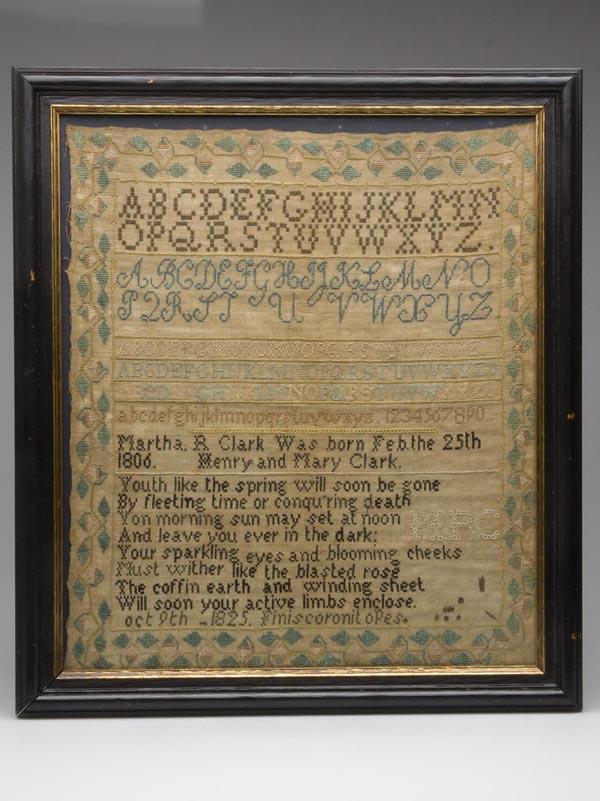 ABCDEFGHIJKLMN
OPQRSTUVWXYZ.
ABCDEFGHIJKLMNO
PQRST U VWXYZ
ABCDEFGHIJKLMNOPQRSTUVWXYZ
abcdefghijklmnopqrstuvwxyz. 1234567890
Martha. R Clark Was born Feb. the 25th
1806. Henry and Mary Clark.
Youth like the spring will soon be gone
By fleeting time or conqu'ring death
Yon morning sun may set at noon
And leave you ever in the dark;
M.R.C
Your sparkling eyes and blooming cheeks
Must wither like the blasted rose
The coffin earth and winding sheet
Will soon your active limbs enclose.
oct 9th - 1825. Finis coronit opes.